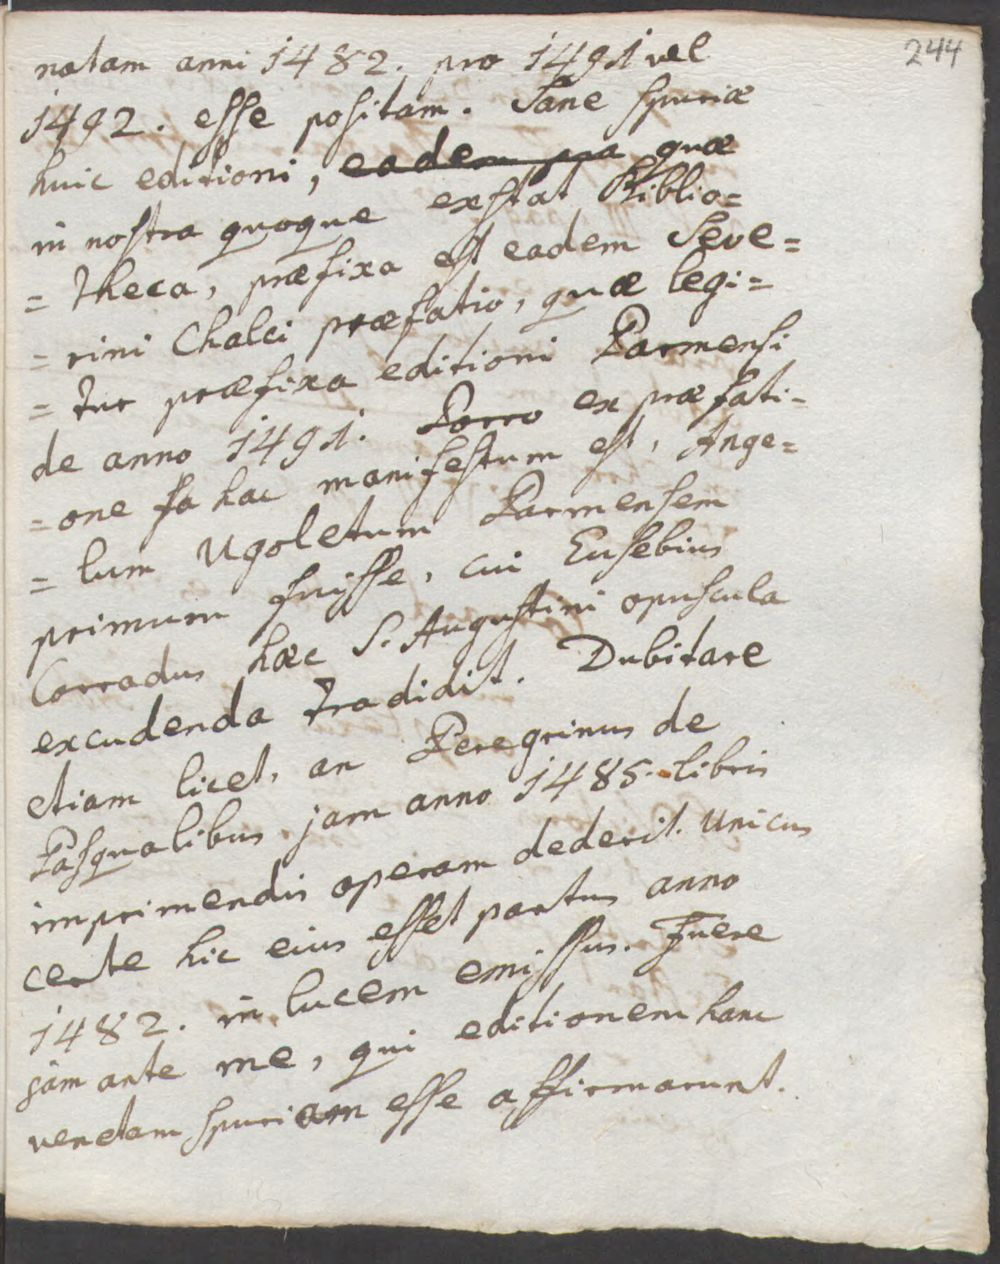 244
natam anni 1482. pro 1491 vel
1492. esse positam. Sane spuriæ
huic editioni, eadem pra quæ
in nostra quoque exstat Biblio=
= theca, præfixa est eadem Seve=
= rini Chalci præfatio, quæ legi=
= tur præfixa editioni Parmensi
de anno 1491. Porro ex præfati-
= one hac manifestum est, Ange=
= lum Ugoletum Parmensem
primum fuisse, cui Eusebius
Corradus hæc S. Augustini opuscula
excudenda tradidit. Dubitare
etiam licet, an Peregrinus de
Pasqualibus jam anno 1485. libris
imprimendis operam dederit. Unicus
certe hic eius esset partus anno
1482. in lucem emissus. Fuere
jam ante me, qui editionem hanc
venetam spuriam esse affirmarunt.